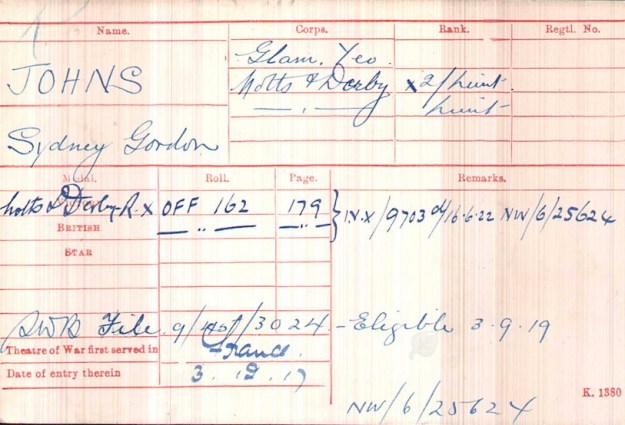 Name. Corps. Rank. Regtl. No.
JOHNS Glam. Yeo.
Notts & Derby x 2/Lieut.
— " — Lieut
Sydney Gordon
Medal. Roll. Page. Remarks.
Notts & Derby R. x OFF 162 179 } I.V.X/9703 d/16.6.22 NW/6/25624
BRITISH — " — — " —
STAR
SWB File 9/ /3024 – Eligible 3.9.19
Theatre of War first served in France.
Date of entry therein 3. .17
K. 1380
NW/6/25624